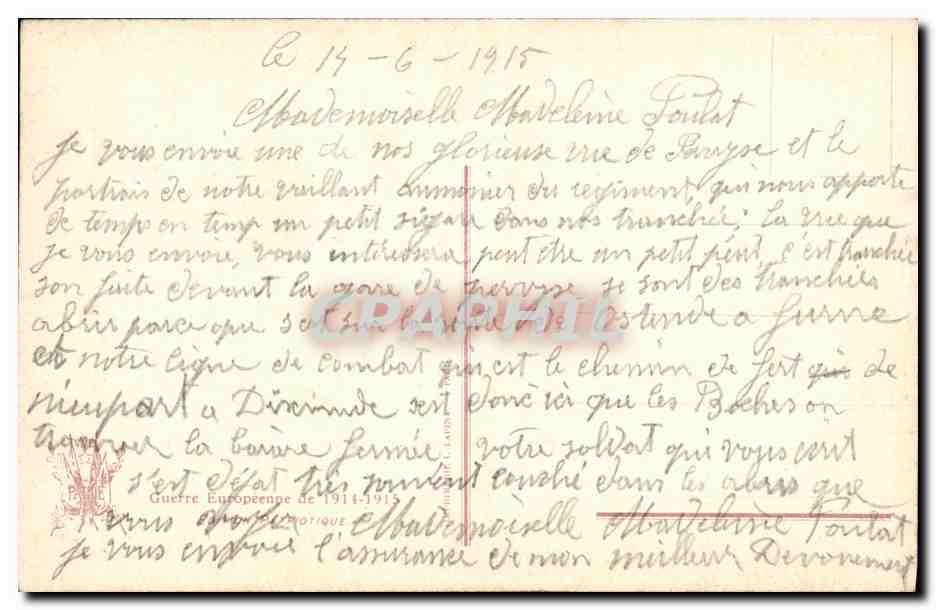 le 14 - 6 - 1915
Mademoiselle Madeleine Foulat
je vous envoie une de nos glorieuse vue de Parvyse et le
portrais de notre vaillant aumonier du regiment, qui nous apporte
de temps en temp un petit sigare dans nos tranchée; la vue que
je vous envoie, vous intéressera peut être un petit peut, c'est tranchée
son faite devant la gare de pervyse, se sont des tranchées
abris parce que sest sur la de Ostende a Furne
et notre ligne de combat qui est le chemin de fert de
nieuport a Dixmude sest donc ici que les Boches on
trouver la barière fermée votre soldat qui vous écrit
s'est déjat très souvent couché dans les abris que
PATRIE
Guerre Européenne de 1914-1915
vous Mademoiselle Madeleine Foulat
je vous envoie l'assurance de mon meilleur Devouement
CPAPHIL